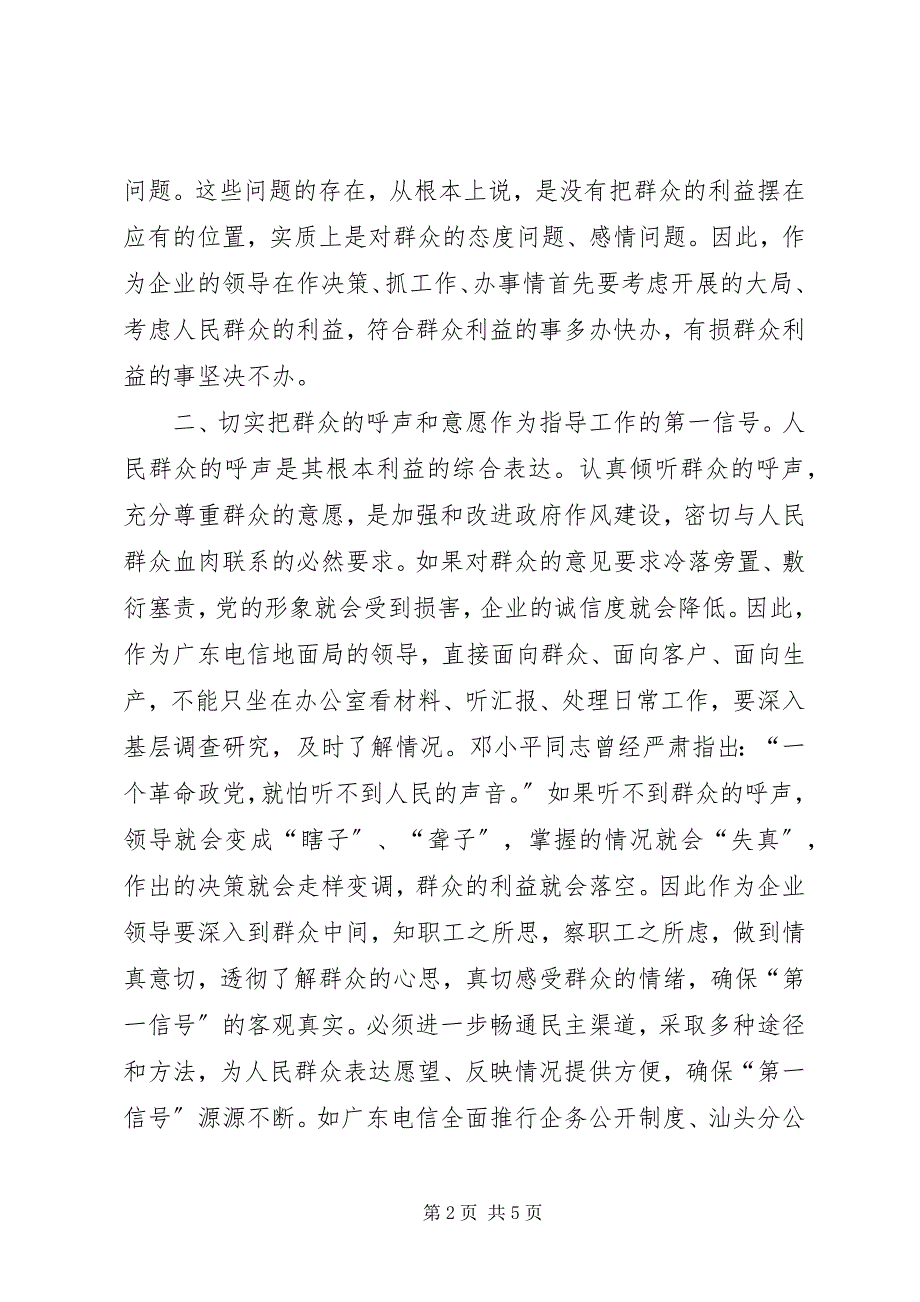 问题。这些问题的存在，从根本上说，是没有把群众的利益摆在
应有的位置，实质上是对群众的态度问题、感情问题。因此，作
为企业的领导在作决策、抓工作、办事情首先要考虑开展的大局、
考虑人民群众的利益，符合群众利益的事多办快办，有损群众利
益的事坚决不办。
二、切实把群众的呼声和意愿作为指导工作的第一信号。人
民群众的呼声是其根本利益的综合表达。认真倾听群众的呼声，
充分尊重群众的意愿，是加强和改进政府作风建设，密切与人民
群众血肉联系的必然要求。如果对群众的意见要求冷落旁置、敷
衍塞责，党的形象就会受到损害，企业的诚信度就会降低。因此，
作为广东电信地面局的领导，直接面向群众、面向客户、面向生
产，不能只坐在办公室看材料、听汇报、处理日常工作，要深入
基层调查研究，及时了解情况。邓小平同志曾经严肃指出：“一
个革命政党，就怕听不到人民的声音。〞如果听不到群众的呼声，
领导就会变成“瞎子〞、“聋子〞，掌握的情况就会“失真〞，
作出的决策就会走样变调，群众的利益就会落空。因此作为企业
领导要深入到群众中间，知职工之所思，察职工之所虑，做到情
真意切，透彻了解群众的心思，真切感受群众的情绪，确保“第
一信号〞的客观真实。必须进一步畅通民主渠道，采取多种途径
和方法，为人民群众表达愿望、反映情况提供方便，确保“第一
信号〞源源不断。如广东电信全面推行企务公开制度、汕头分公
第 2 页 共 5 页